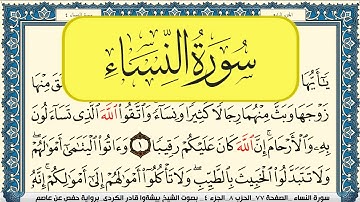 سُورَةُ النِّسَاءِ
يَٰٓأَيُّهَا
لَقَ مِنْهَا
زَوْجَهَا وَبَثَّ مِنْهُمَا رِجَالًا كَثِيرًا وَنِسَآءً ۚ وَٱتَّقُوا۟ ٱللَّهَ ٱلَّذِى تَسَآءَلُونَ
بِهِۦ وَٱلْأَرْحَامَ ۚ إِنَّ ٱللَّهَ كَانَ عَلَيْكُمْ رَقِيبًا ١ وَءَاتُوا۟ ٱلْيَتَٰمَىٰٓ أَمْوَٰلَهُمْ ۖ
وَلَا تَتَبَدَّلُوا۟ ٱلْخَبِيثَ بِٱلطَّيِّبِ ۖ وَلَا تَأْكُلُوٓا۟ أَمْوَٰلَهُمْ إِلَىٰٓ أَمْوَٰلِكُمْ ۚ إِنَّهُۥ
سورة النساء الصفحة ٧٧ الحزب ٨ الجزء ٤ بصوت الشيخ بيشةوا قادر الكردي برواية حفص عن عاصم